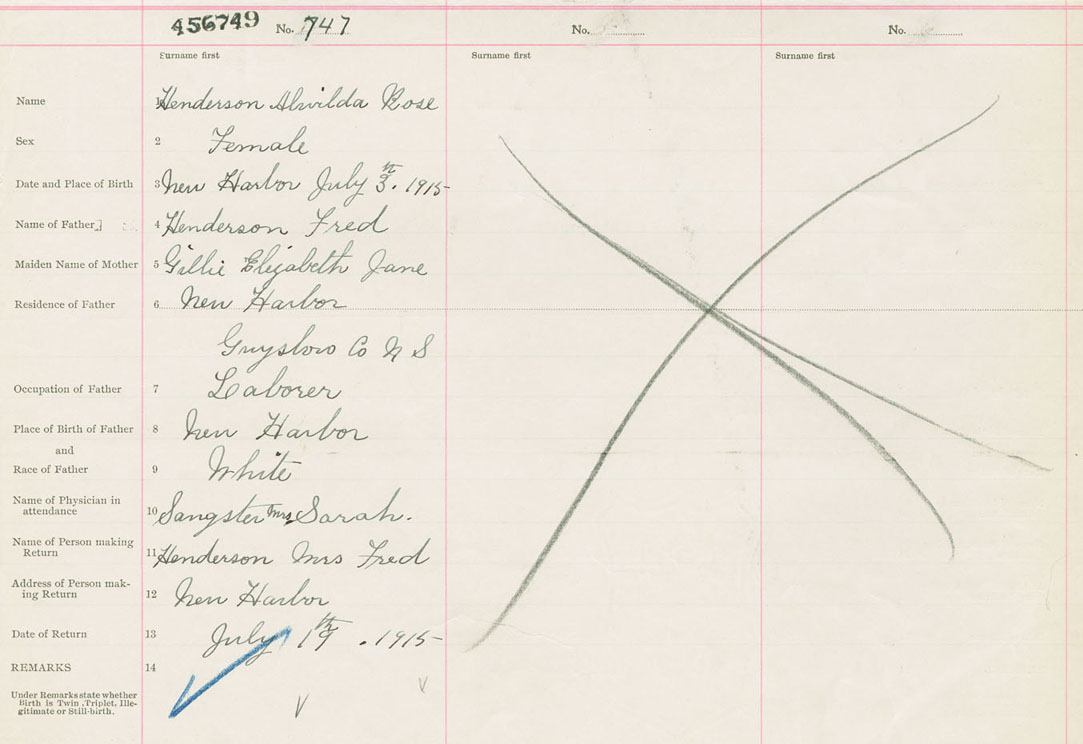 456749 No. 747 No. No.
Surname first Surname first Surname first
Name 1 Henderson Alwilda Rose
Sex 2 Female
Date and Place of Birth 3 New Harbor July 3th. 1915
Name of Father 4 Henderson Fred
Maiden Name of Mother 5 Gillie Elizabeth Jane
Residence of Father 6 New Harbor
Guysboro Co N S
Occupation of Father 7 Laborer
Place of Birth of Father 8 New Harbor
and
Race of Father 9 White
Name of Physician in
attendance 10 Sangster Mrs Sarah.
Name of Person making
Return 11 Henderson Mrs Fred
Address of Person mak-
ing Return 12 New Harbor
Date of Return 13 July 19th. 1915
REMARKS 14
Under Remarks state whether
Birth is Twin, Triplet, Ille-
gitimate or Still-birth.